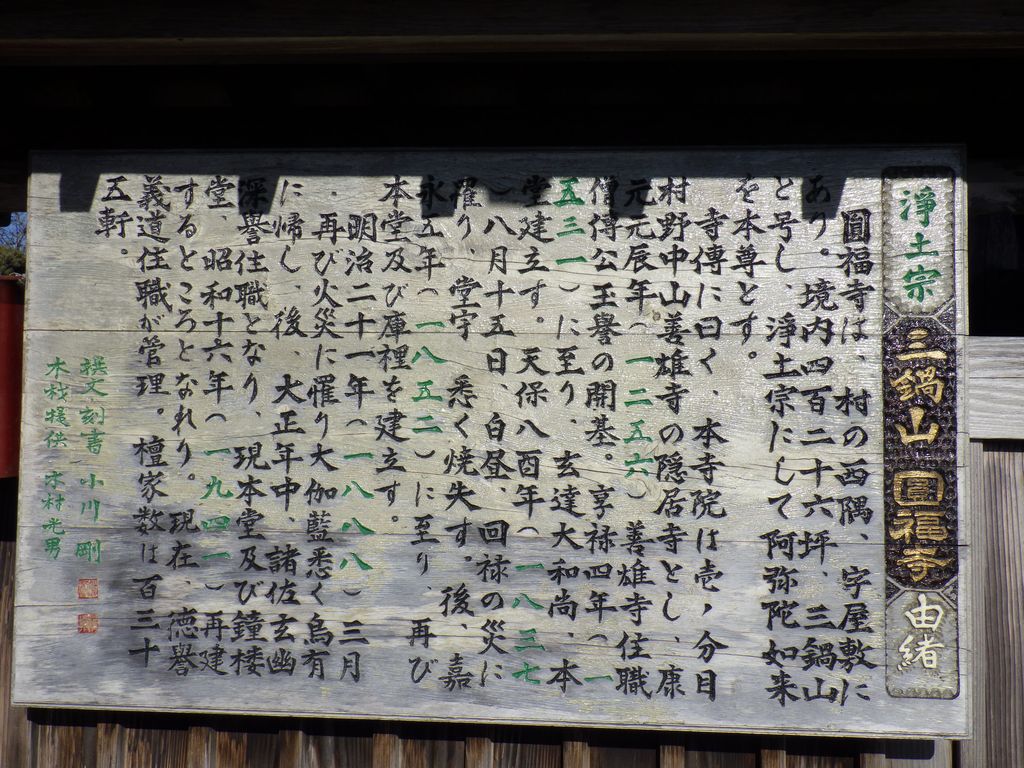 淨土宗 三鍋山 圓福寺 由緒
圓福寺は、村の西隅、字屋敷に
あり。境内四百二十六坪、三鍋山
と号し、淨土宗にして阿弥陀如来
を本尊とす。
寺傳に曰く、本寺院は壱、分目
村野中山善雄寺の隠居寺とし、康
元元辰年(一二五六)善雄寺住職
僧傳公玉譽の開基。享禄四年(一
五三一)に至り、玄達大和尚、本
堂建立す。天保八酉年(一八三七
)八月十五日、白昼、回禄の災に
罹り、堂宇悉く焼失す。後、嘉
永五年(一八五二)に至り、再び
本堂及び庫裡を建立す。
明治二十一年(一八八八)三月
再び火災に罹り大伽藍悉く烏有
に帰し、後、大正年中、諸佐玄幽
深譽住職となり、現本堂及び鐘楼
堂、昭和十六年(一九四一)再建
するところとなれり。現在、德譽
義道住職が管理。檀家数は百三十
五軒。
撰文刻書 小川剛
木材提供 木村光男